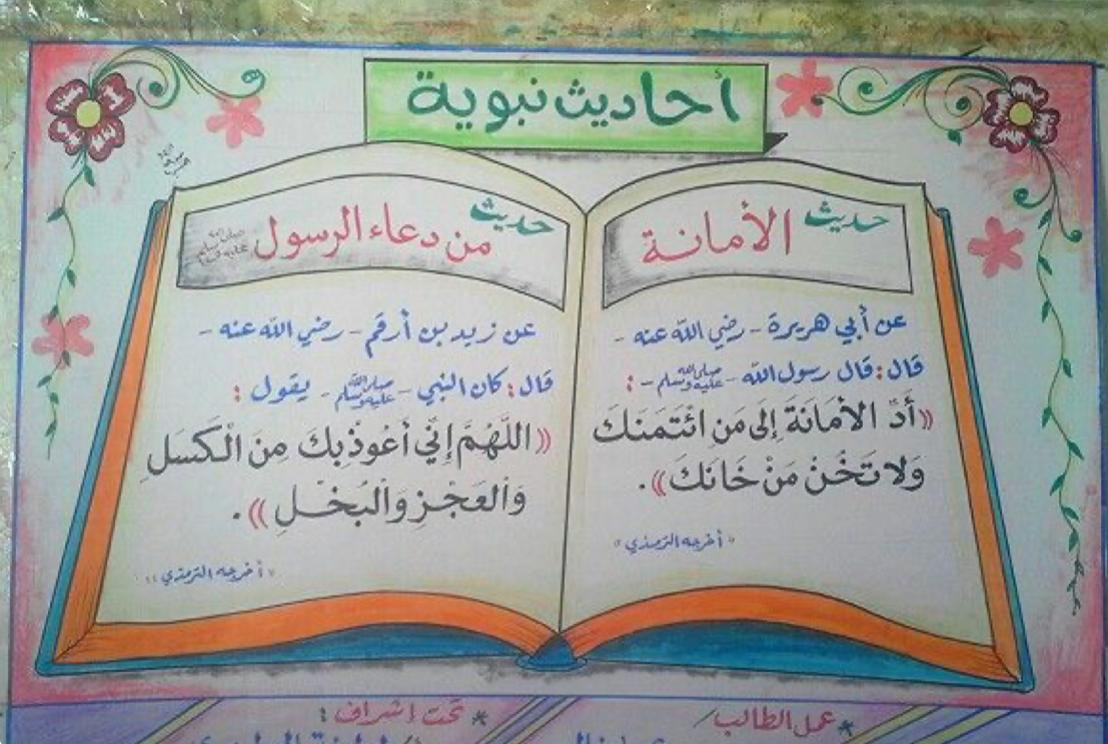 أحاديث نبوية
حديث الأمانة
عن أبي هريرة - رضي الله عنه -
قال: قال رسول الله - صلى الله عليه وسلم - :
((أَدِّ الأَمَانَةَ إِلَى مَنِ ائْتَمَنَكَ
وَلا تَخُنْ مَنْ خَانَكَ)).
"أخرجه الترمذي"
حديث من دعاء الرسول صلى الله عليه وسلم
عن زيد بن أرقم - رضي الله عنه -
قال: كان النبي - صلى الله عليه وسلم - يقول :
((اللَّهُمَّ إِنِّي أَعُوذُ بِكَ مِنَ الْكَسَلِ
وَالْعَجْزِ وَالْبُخْلِ)).
"أخرجه الترمذي"
* عمل الطالب/
* تحت اشراف :